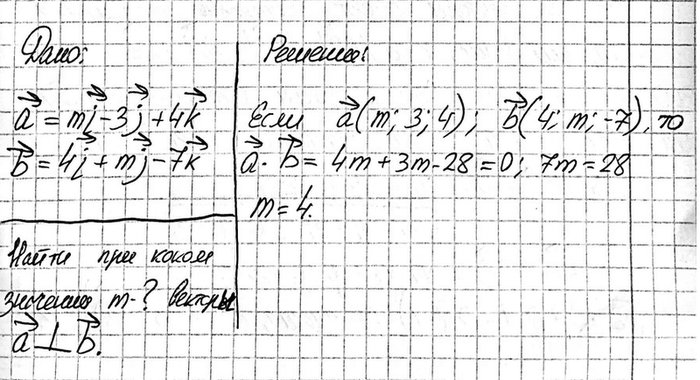 Дано:
a⃗ = mj⃗ - 3j⃗ + 4k⃗
b⃗ = 4j⃗ + mj⃗ - 7k⃗
Найти при каком
значении m-? векторы
a⃗ ⊥ b⃗.
Решение:
Если a⃗(m; 3; 4); b⃗(4; m; -7), то
a⃗ · b⃗ = 4m + 3m - 28 = 0; 7m = 28
m = 4.